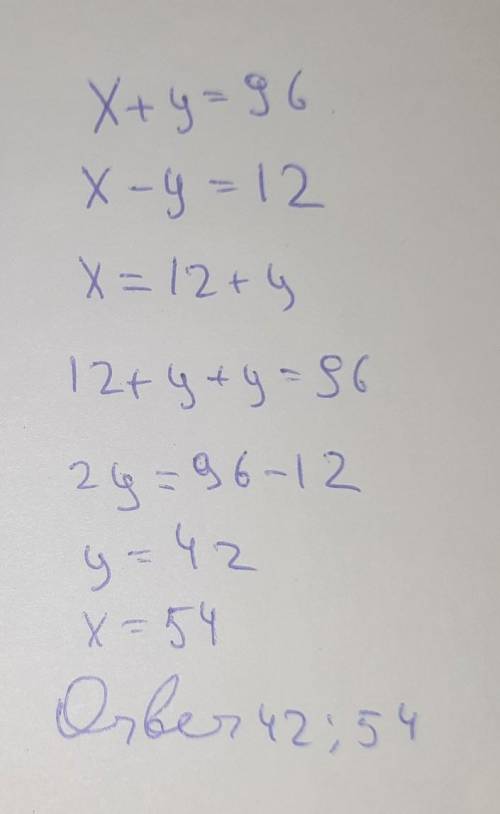 x+y=96
x-y=12
x=12+y
12+y+y=96
2y=96-12
y=42
x=54
Ответ 42; 54